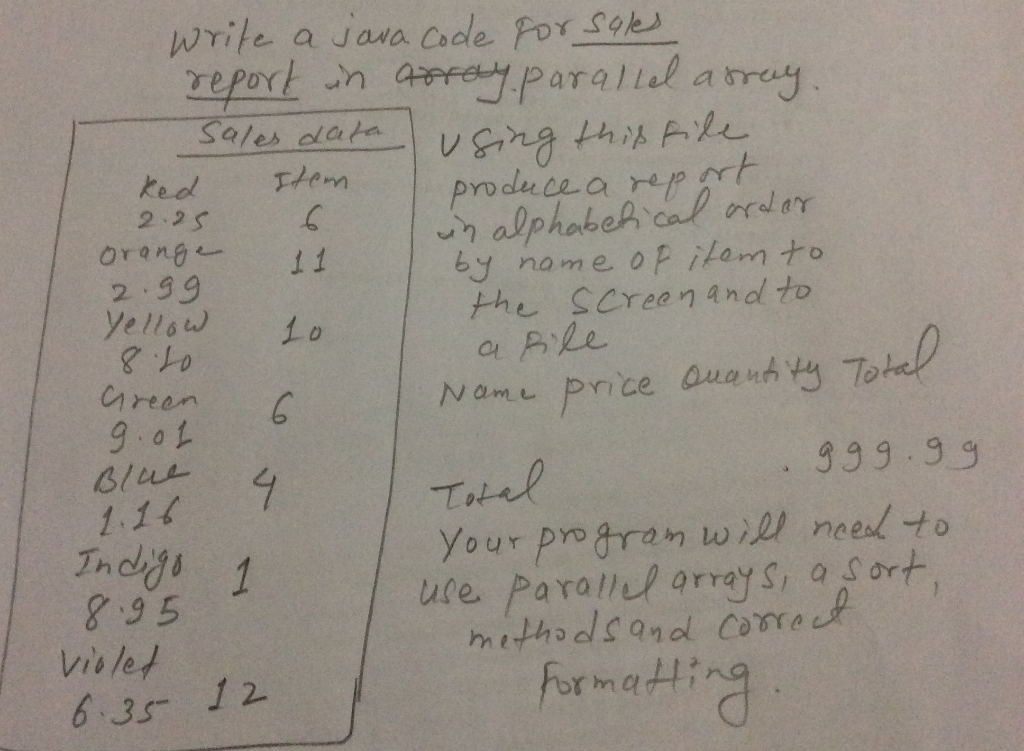 Write a java code for sales
report in array parallel array.
Sales data
Red Item
2.25 6
Orange 11
2.99
Yellow 10
8.10
Green 6
9.01
Blue 4
1.16
Indigo 1
8.95
Violet
6.35 12
Using this file
produce a report
in alphabetical order
by name of item to
the screen and to
a file
Name price Quantity Total
. 999.99
Total
Your program will need to
use parallel arrays, a sort,
methods and correct
formatting.